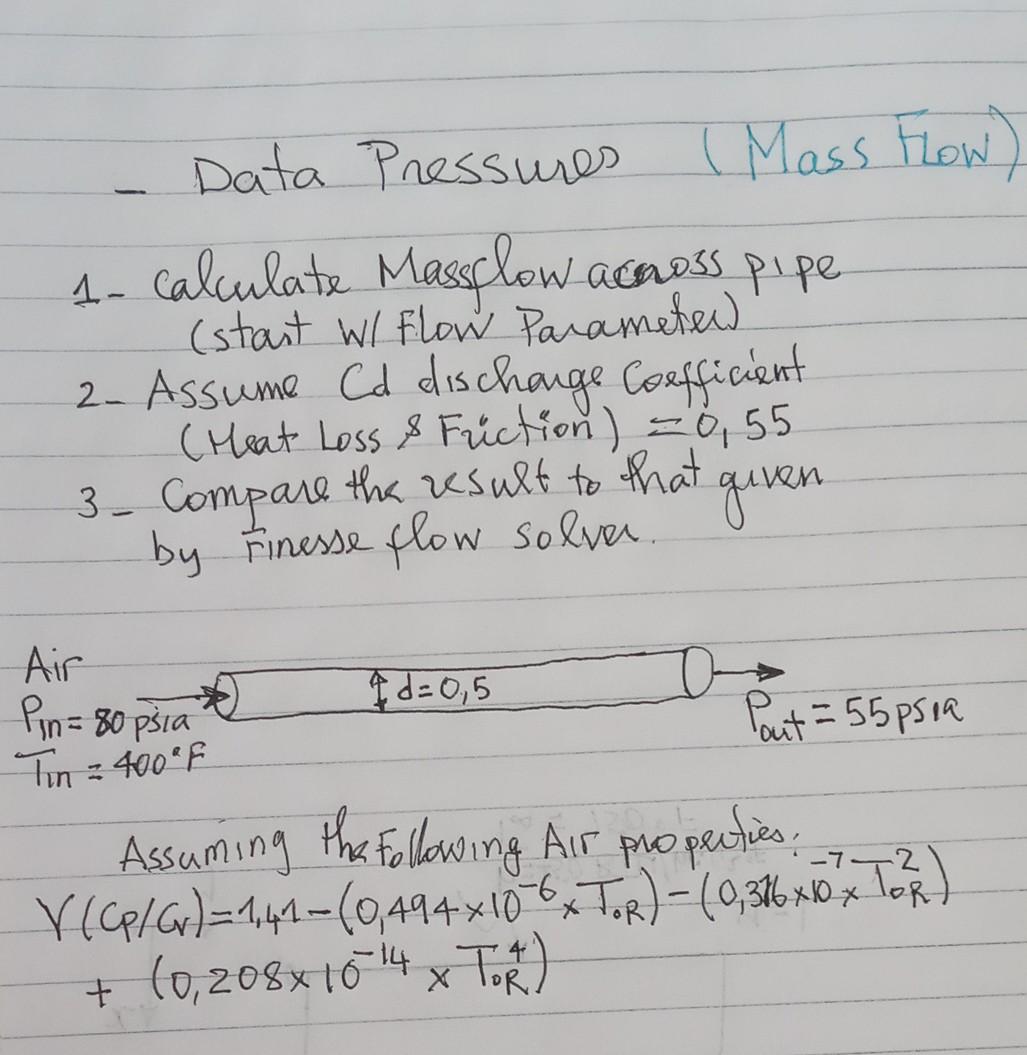 - Data Pressures (Mass Flow)
1- Calculate Massflow across pipe
(start w/ Flow Parameter)
2- Assume Cd discharge Coefficient
(Heat Loss & Friction) = 0,55
3- Compare the result to that given
by Finesse flow solver.
Air
Pin = 80 psia
Tin = 400°F
d = 0,5
Pout = 55 psia
Assuming the Following Air properties:
γ(Cp/Cv) = 1,41 - (0,494 x 10⁻⁶ x T°R) - (0,376 x 10⁻⁷ x T°R²)
+ (0,208 x 10⁻¹⁴ x T°R⁴)